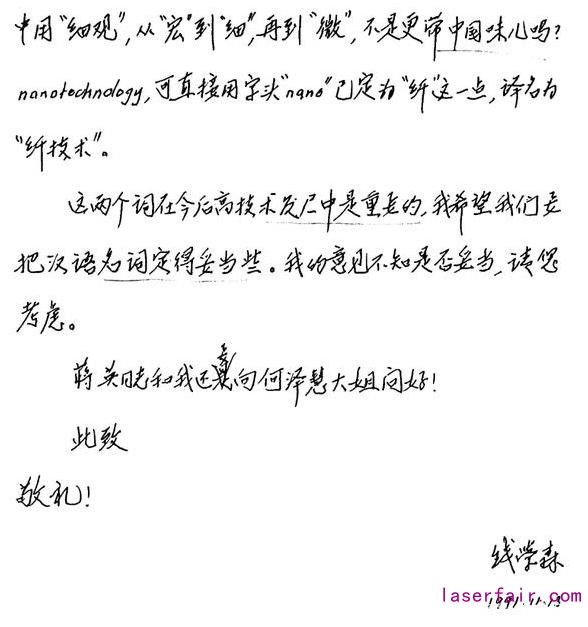 中用“细观”,从“宏”到“细”,再到“微”,不是更带中国味儿吗?
nanotechnology,可直接用字头“nano”已定为“纤”这一点,译名为
“纤技术”。
这两个词在今后高技术发展中是重要的,我希望我们要
把汉语名词定得妥当些。我的意见不知是否妥当,请您
考虑。
蒋英同志和我还要向何泽慧大姐问好!
此致
敬礼!
钱学森
laserfair.com
1991.11.15